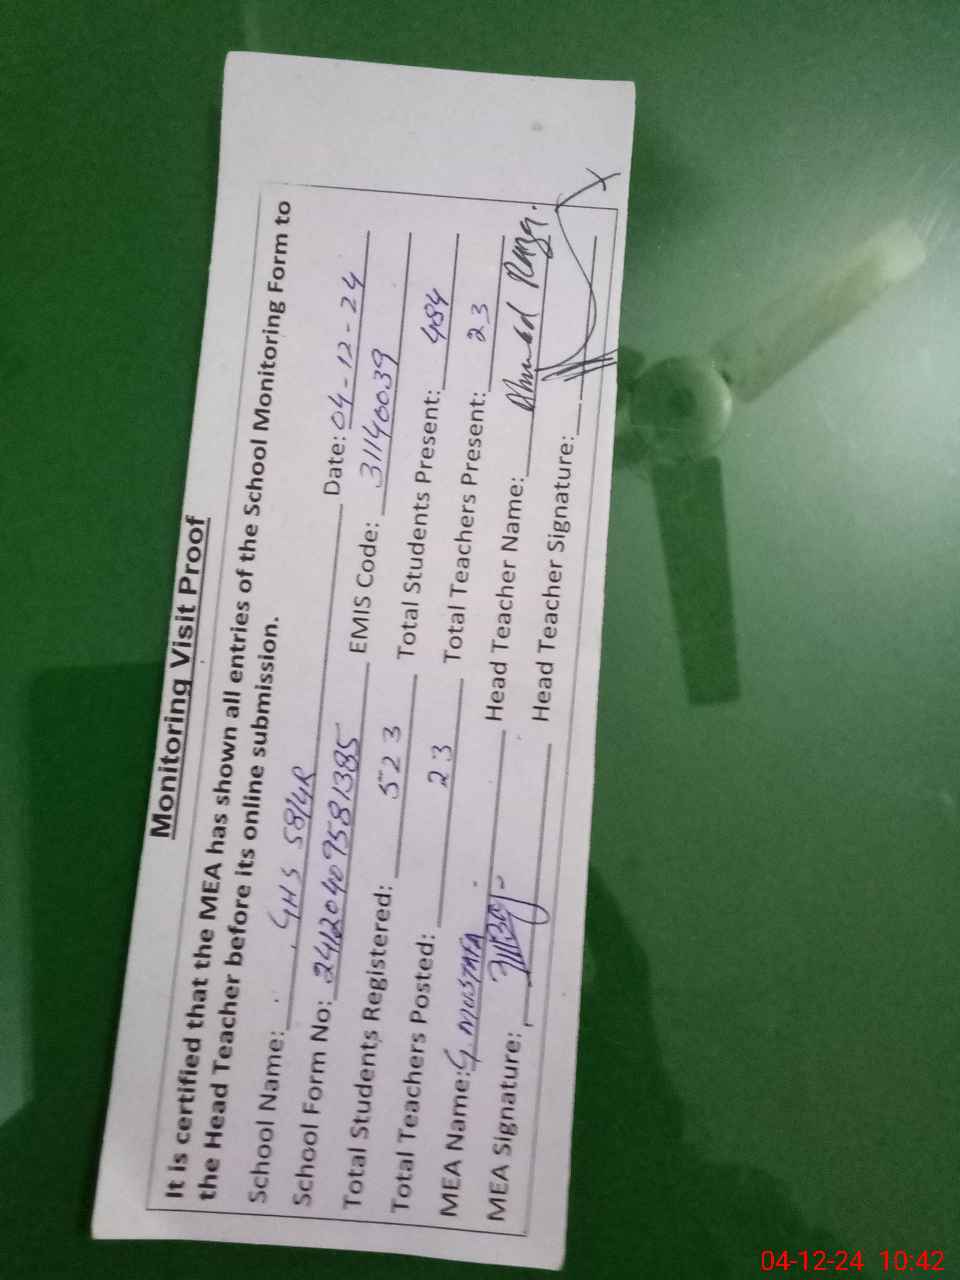 Monitoring Visit Proof
It is certified that the MEA has shown all entries of the School Monitoring Form to
the Head Teacher before its online submission.
School Name: GHS 58/4R Date: 04-12-24
School Form No: 24120409581385 EMIS Code: 31140039
Total Students Registered: 523 Total Students Present: 484
Total Teachers Posted: 23 Total Teachers Present: 23
MEA Name: G. MUSTAFA Head Teacher Name: Ahmad Raza.
MEA Signature: Head Teacher Signature:
04-12-24 10:42